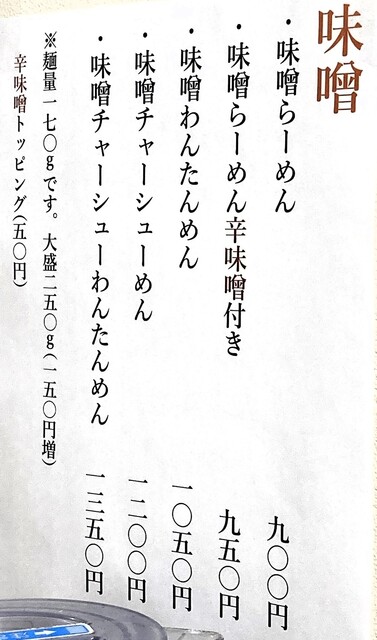 味噌
・味噌らーめん 九〇〇円
・味噌らーめん辛味噌付き 九五〇円
・味噌わんたんめん 一〇五〇円
・味噌チャーシューめん 一二〇〇円
・味噌チャーシューわんたんめん 一三五〇円
※麺量一七〇gです。大盛二五〇g(一五〇円増)
辛味噌トッピング(五〇円)